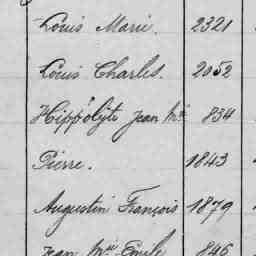 Louis Marie. 2321
Louis Charles. 2052
Hippolyte Jean Mie 834
Pierre. 1843
Augustin François 1879
Jean Mie Émile 846